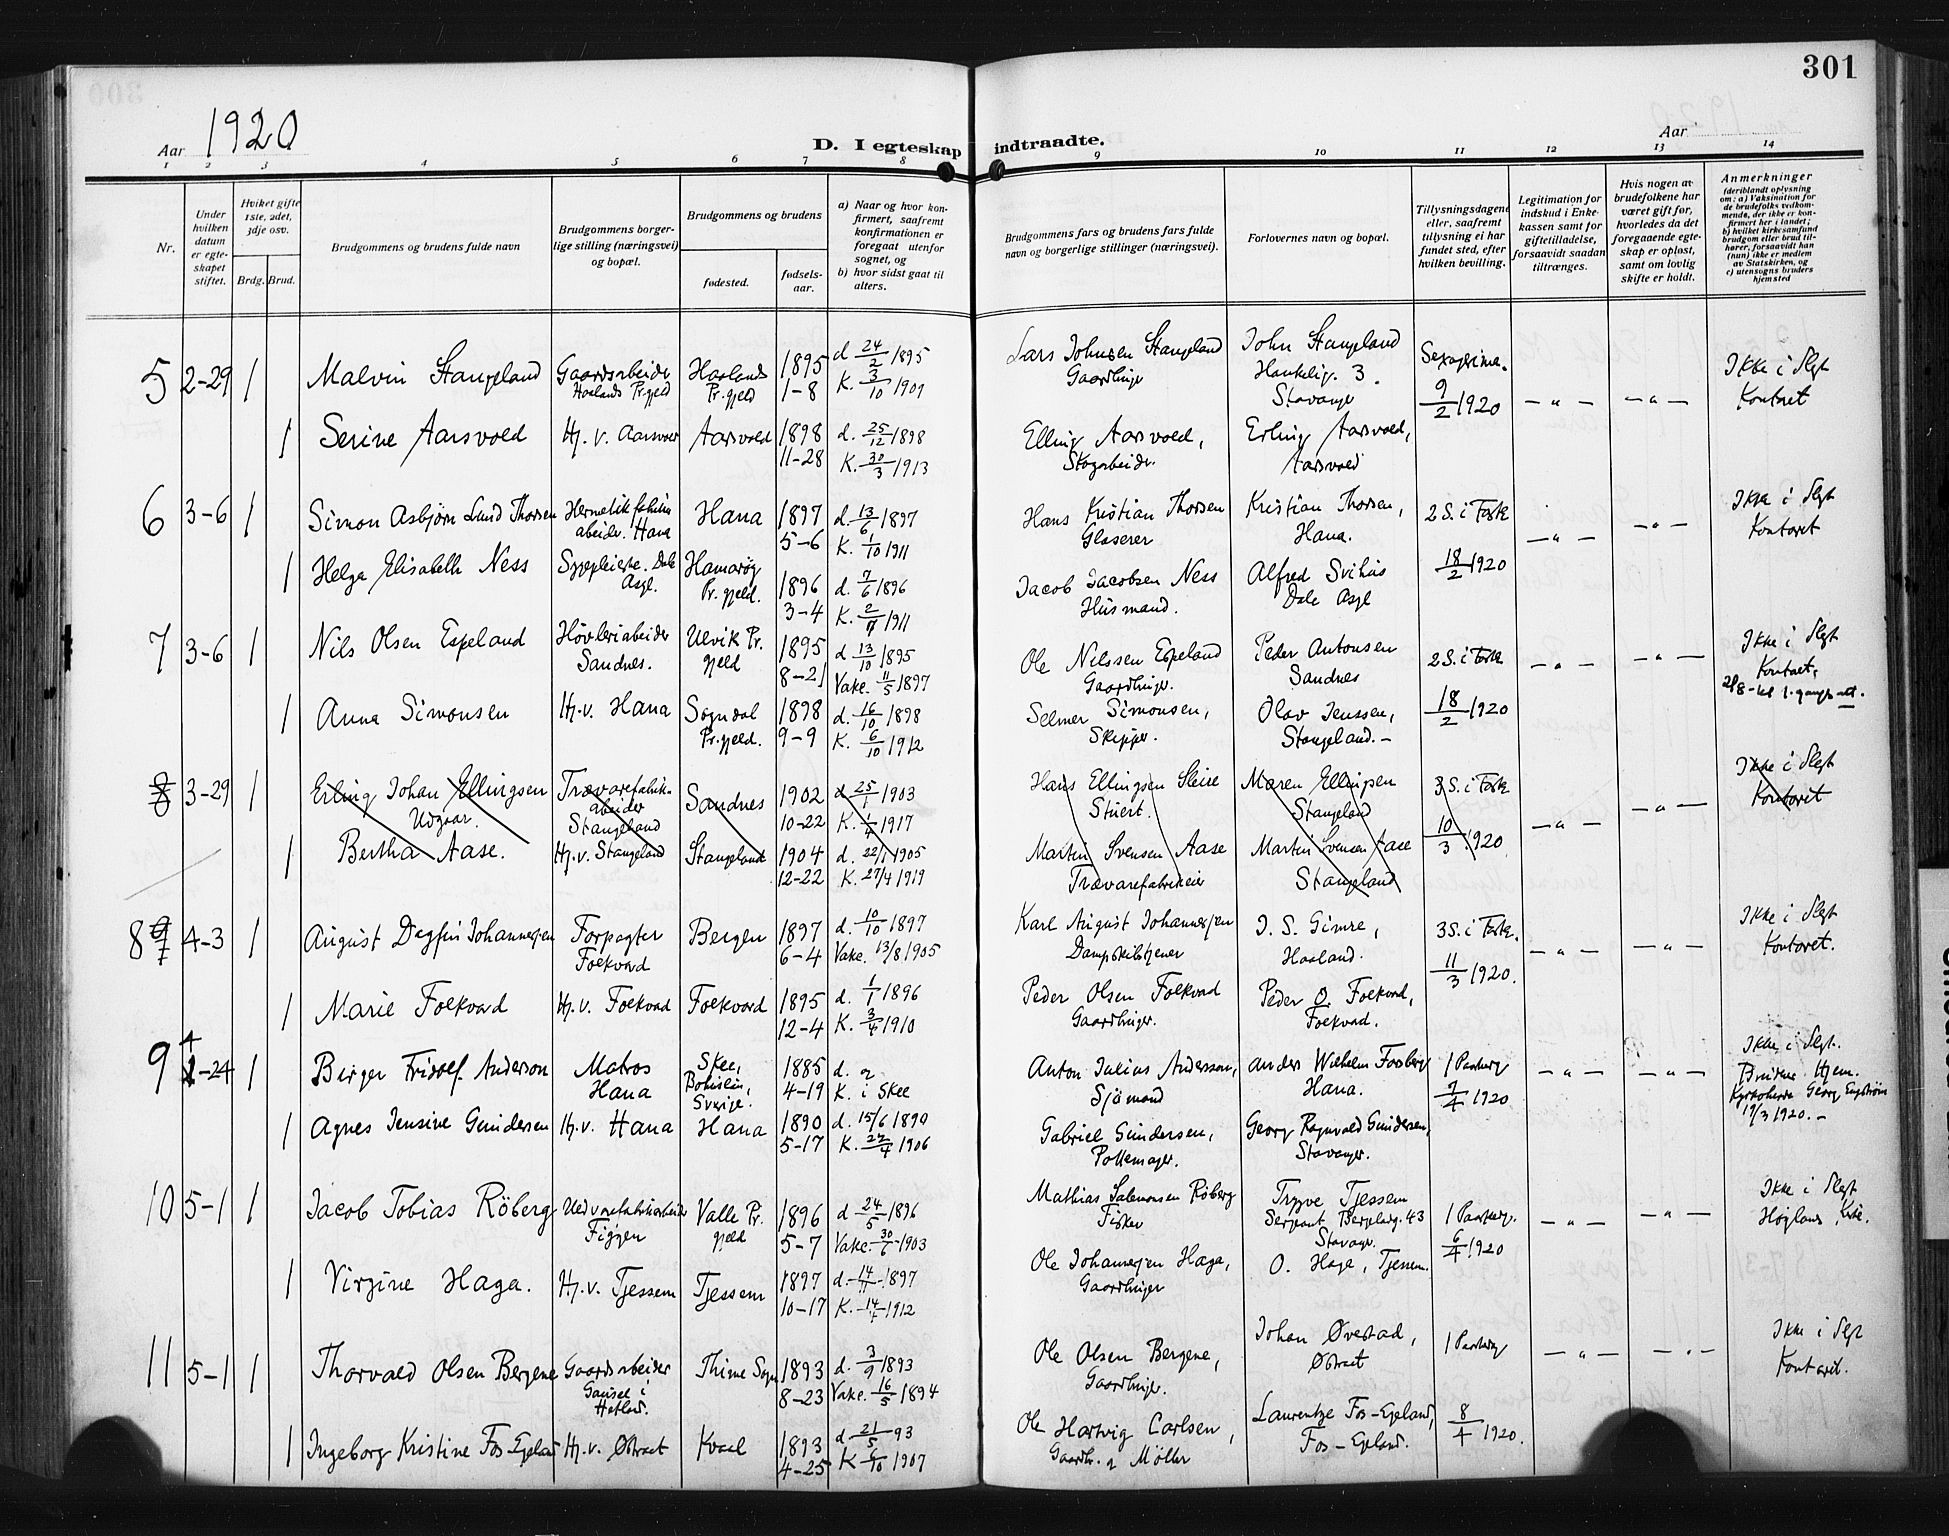 301
Aar 1920
D. I egteskap indtraadte.
Aar
1 2 3 4 5 6 7 8 9 10 11 12 13 14
Nr.
Under hvilken datum er egteskapet stiftet.
Hviket gifte 1ste, 2det, 3dje osv.
Brdg. Brud.
Brudgommens og brudens fulde navn
Brudgommens borgerlige stilling (næringsvei) og bopæl.
Brudgommens og brudens
fødested.
fødselsaar.
a) Naar og hvor konfirmert, saafremt konfirmationen er foregaat utenfor sognet, og
b) hvor sidst gaat til alters.
Brudgommens fars og brudens fars fulde navn og borgerlige stillinger (næringsvei).
Forlovernes navn og bopæl.
Tillysningsdagene eller, saafremt tillysning ei har fundet sted, efter hvilken bevilling.
Legitimation for indskud i Enkekassen samt for giftetilladelse, forsaavidt saadan tiltrænges.
Hvis nogen av brudefolkene har været gift før, hvorledes da det foregaaende egteskap er opløst, samt om lovlig skifte er holdt.
Anmerkninger (deriblandt oplysning om: a) Vaksination for de brudefolks vedkommende, der ikke er konfirmert her i landet; b) hvilket kirkesamfund brudgom eller brud tilhører, forsaavidt han (hun) ikke er medlem av Statskirken, og c) utensogns bruders hjemsted
5 2-29 1 Malvin Stangeland Gaardsarbeider Haalands Pr.gjeld Haalands Pr.gjeld 1895 1-8 d. 24/2 1895 K. 3/10 1909 Lars Johnsen Stangeland Gaardbruger John Stangeland Hankelig. 3. Stavanger 9/2 1920 - " - - " - Ikke i Slegt Kontoret
1 Serine Aarsvold Hj. v. Aarsvold Aarsvold 1898 11-28 d. 25/12 1898 K. 30/3 1913 Elling Aarsvold, Skogarbeider. Erling Aarsvold, Aarsvold
6 3-6 1 Simon Asbjørn Lund Thorsen Hana 1897 5-6 d. 13/6 1897 K. 1/10 1911 Hans Kristian Thorsen Glaserer Kristian Thorsen, Hana. 2 S. i Faste 18/2 1920 - " - - " - Ikke i Slegt Kontoret
1 Helga Elisabeth Ness Sypleierske. Dale Asyl. Hamarøy Pr.gjeld. 1896 3-4 d. 7/6 1896 K. 2/7 1911 Jacob Jacobsen Ness Husmand. Alfred Svihus Dale Asyl
7 3-6 1 Nils Olsen Espeland Høvleriarbeider Sandnes. Ulvik Pr.gjeld 1895 8-21 d. 13/10 1895 Vakc. 11/5 1897 Ole Nilssen Espeland Gaardbruger. Peder Antonsen Sandnes 2 S. i Faste 18/2 1920 - " - - " - Ikke i Slegt Kontoret,
1 Anna Simonsen Hj. v. Hana Sogndal Pr.gjeld. 1898 9-9 d. 16/10 1898 K. 6/10 1912 Selmer Simonsen, Skipper. Olav Jenssen, Stangeland. -
8 3-29 1 Erling Johan Ellingsen Udgaar. Trævarefabrikarbeider Stangeland Sandnes 1902 10-22 d. 25/1 1903 K. 1/4 1917 Hans Ellingsen Sleire Stuert. Maren Ellingsen Stangeland 3 S. i Faste 10/3 1920 - " - - " - Ikke i Slegt Kontoret
1 Bertha Aase. Hj. v. Stangeland Stangeland 1904 12-22 d. 22/1 1905 K. 27/4 1919 Martin Svensen Aase Trævarefabrikeier Martin Svensen Aase Stangeland
8 4-3 1 August Dagfin Johannesen Forpagter Folkvord Bergen 1897 6-4 d. 10/10 1897 Vakc. 13/8 1905 Karl August Johannesen Dampskibstjener J. S. Gimre, Haaland. 3 S. i Faste. 11/3 1920. - " - - " - Ikke i Slegt Kontoret.
1 Marie Folkvord Hj. v. Folkvord Folkvord 1895 12-4 d. 1/1 1896 K. 3/4 1910 Peder Olsen Folkvord Gaardbruger. Peder O. Folkvord, Folkvord.
9 4-24 1 Birger Fridolf Anderson Matros Hana Skee, Bohuslän, Sverige. 1885 4-19 d. og K. i Skee Anton Julius Andersson, Sjømand Anders Wilhelm Forsberg Hana. 1 Paaskedag 7/4 1920 - " - - " - Ikke i Slegt. Brudens Hjem. Kyrkoherde Georg Engström 19/3 1920. -
1 Agnes Jensine Gundersen Hj. v. Hana Hana 1890 5-17 d. 15/6 1890 K. 22/4 1906 Gabriel Gundersen, Pottemager. Georg Ragnvald Gundersen, Stavanger.
10 5-1 1 Jacob Tobias Röberg Uldvarefabrikarbeider Figgen Valle Pr.gjeld 1896 5-7 d. 24/5 1896 Vakc. 30/6 1903 Mathias Salomonsen Röberg Fisker Trygve Tjessem Sergeant Bergelandsg. 43 Stavanger. 1 Paaskedag. 6/4 1920 - " - - " - Ikke i Slegt Høylands Kirke.
1 Virgine Haga. Hj. v. Tjessem Tjessem 1897 10-17 d. 14/11 1897 K. 14/4 1912 Ole Johannesen Haga, Gaardbruger O. Haga, Tjessem.
11 5-1 1 Thorvald Olsen Bergene Gaardsarbeider Gausel i Hetland. Thime Sogn 1893 8-23 d. 3/9 1893 Vakc. 16/5 1894 Ole Olsen Bergene, Gaardbruger. Johan Øvestad, Østraat 1 Paaskedag 8/4 1920. - " - - " - Ikke i Slegt Kontoret.
1 Ingeborg Kristine Fos-Egeland Hj. v. Østraat Kvaal 1893 4-25 d. 21/5 93 K. 6/10 1907 Ole Hartvig Carlsen, Gaardbr. og Møller Laurentze Fos-Egeland, Fos-Egeland.